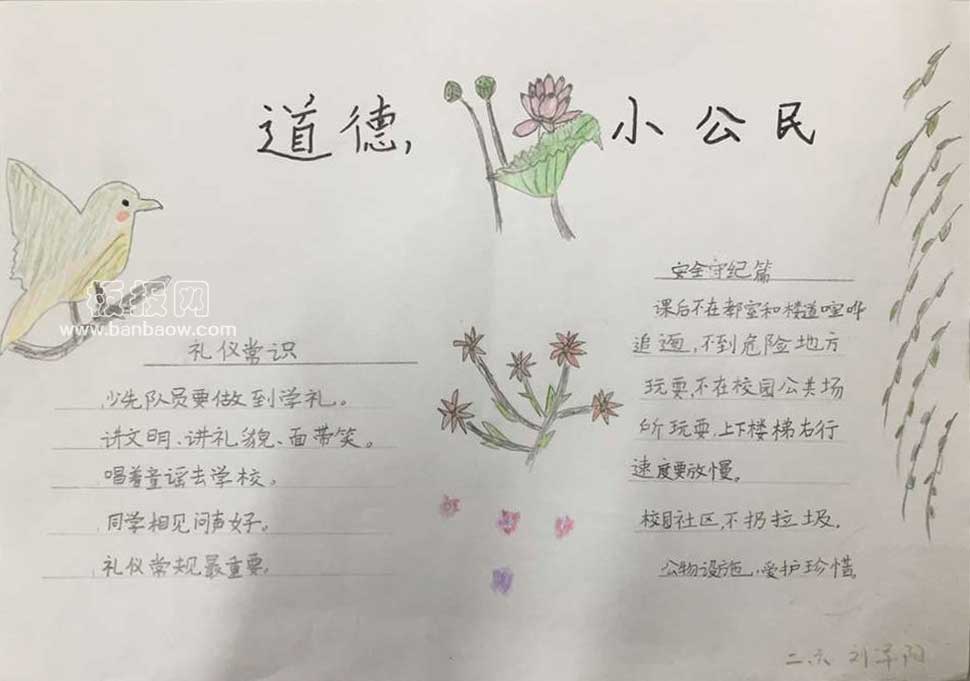 道德,小公民
礼仪常识
少先队员要做到学礼。
讲文明、讲礼貌、面带笑。
唱着童谣去学校。
同学相见问声好。
礼仪常规最重要。
安全守纪篇
课后不在都室和楼道喧哗
追逥,不到危险地方
玩耍,不在校园公共场
所玩耍,上下楼梯右行
速度要放慢。
校园社区,不扔拉圾,
公物设施,爱护珍惜。
板报网
www.banbaow.com
二六 刘泽阳